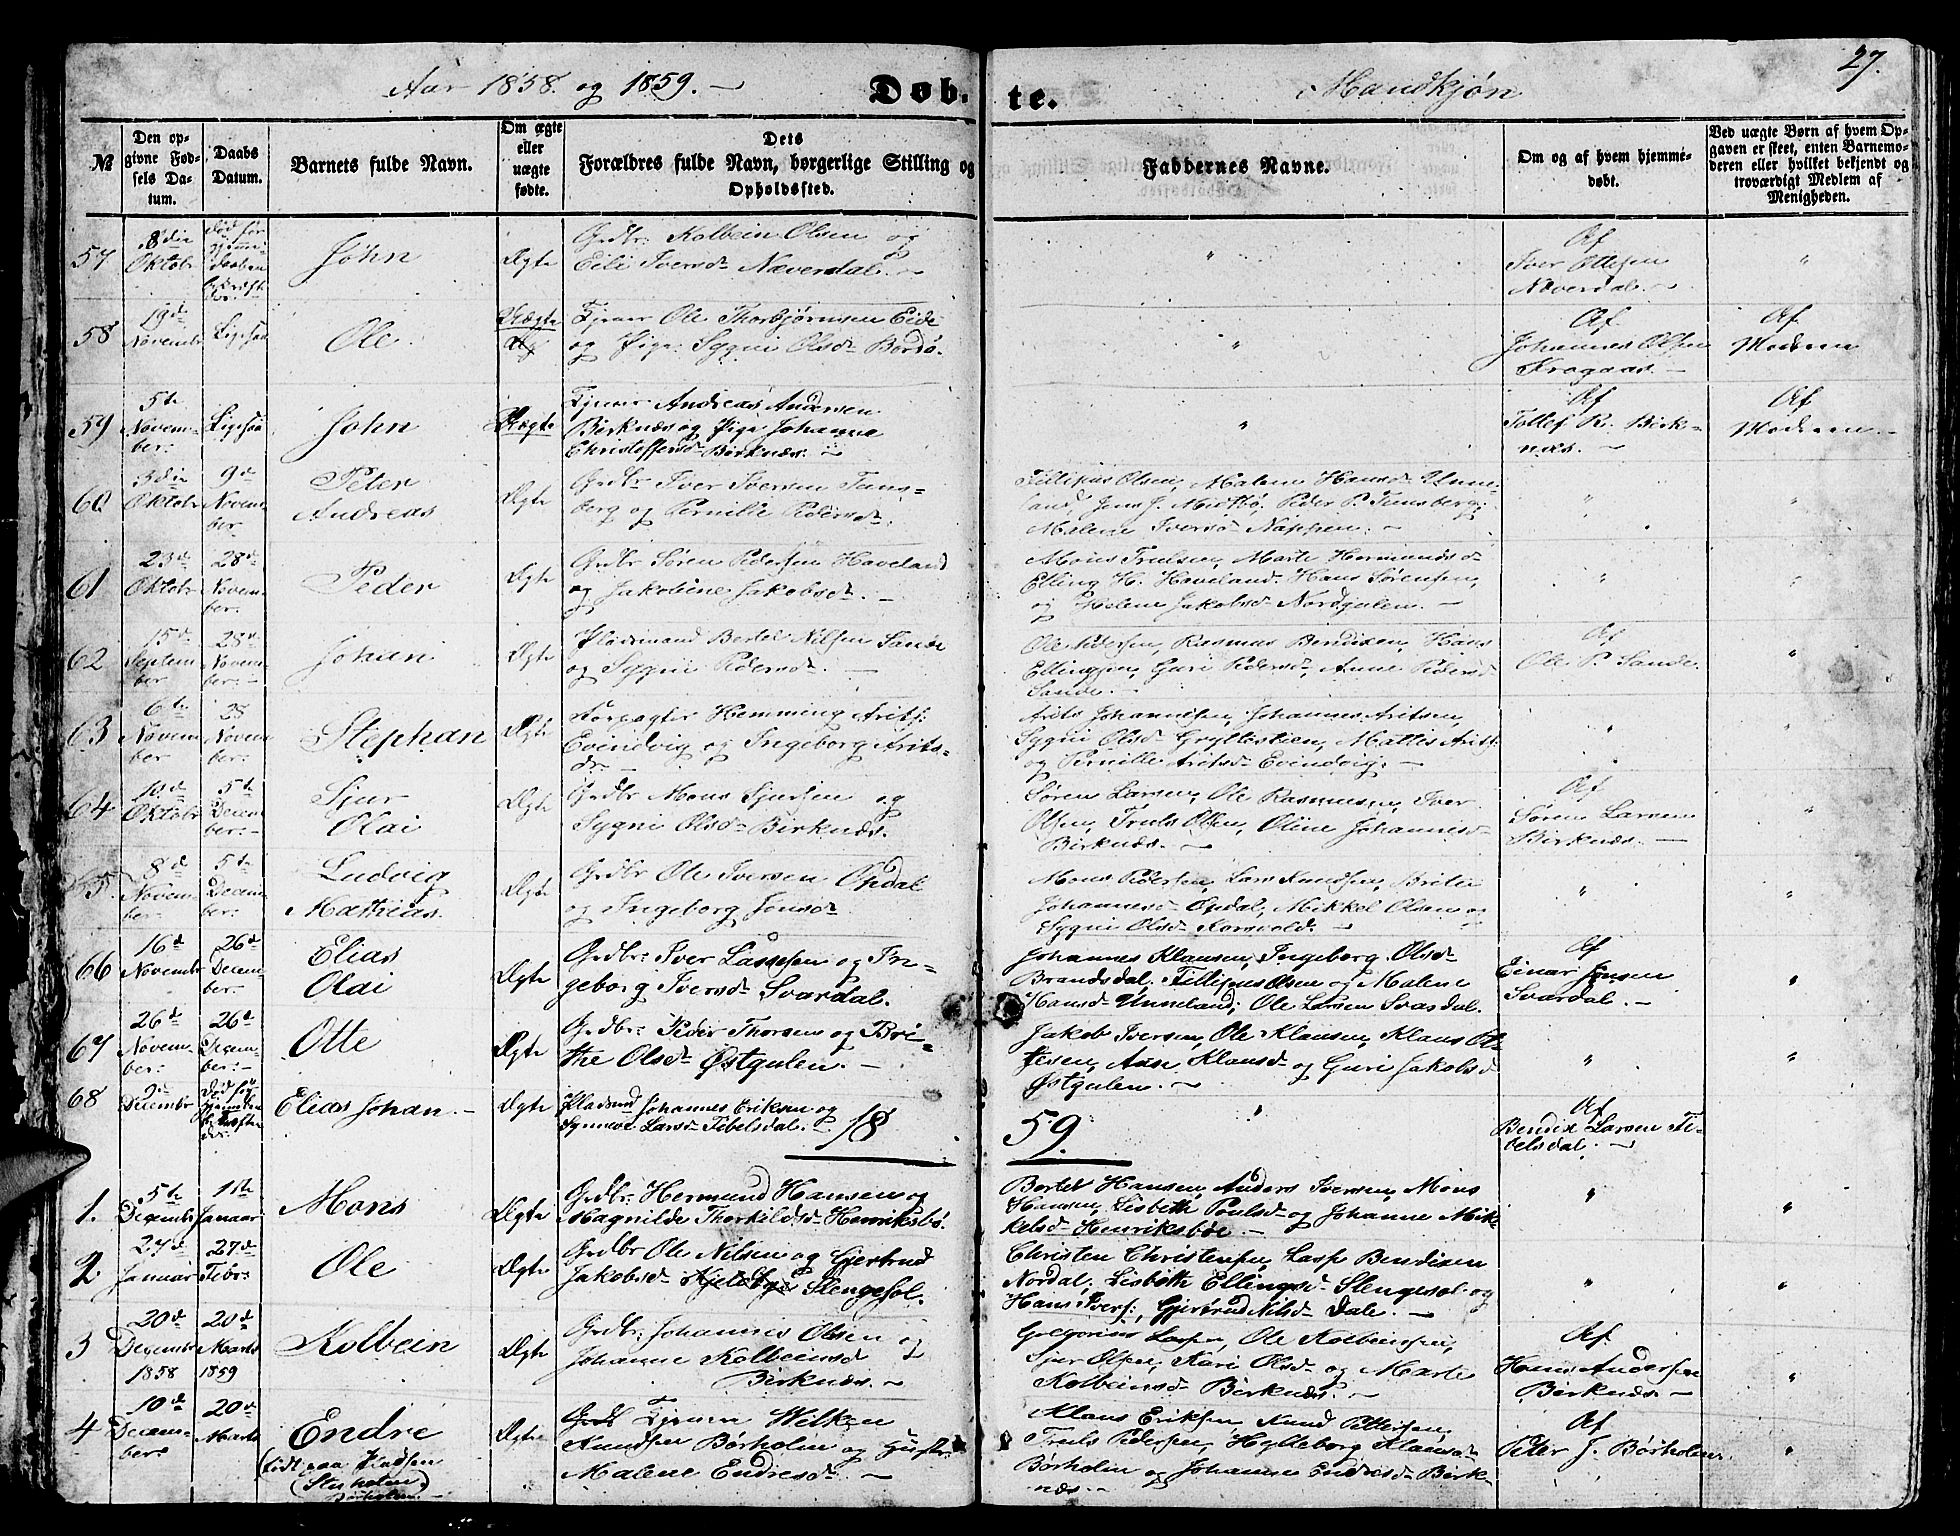 27.
Aar 1858. og 1859. –
Døb-
te.
Mandkjøn
№
Den op-
givne Fød-
sels Da-
tum.
Daabs
Datum.
Barnets fulde Navn.
Om ægte
eller
uægte
fødte.
Dets
Forældres fulde Navn, borgerlige Stilling og
Opholdssted.
Faddernes Navne.
Om og af hvem hjemme-
døbt.
Ved uægte Børn af hvem Op-
gaven er skeet, enten Barnemo-
deren eller hvilket bekjendt og
troværdigt Medlem af
Menigheden.
57
8die
Oktobr
død før
John
Ægte
Grdbr: Kolbein Olsen og
Eili Iversd Næverdal. –
"
Af
Iver Ottesen
Næverdal. –
"
58
19de
Novembr
Ligesaa
Ole.
Uægte
Tjener Ole Thorbjørnsen Eide
og Pige Sygni Olsd Bordø.
"
Af
Johannes Olsen
Kragaas. –
Af
Moderen
59
5te
Novem-
ber
Ligesaa
John
Uægte
Tjener Andreas Andersen
Birknæs og Pige Johanne
Christoffersd Birknæs. –
"
Af
Tollef R. Birk-
næs. –
Af
Moderen. –
60
3die
Oktobr
9de
Novem-
ber
Peter
Andreas
Ægte
Grdbr Iver Iversen Tuns-
berg og Pernille Pedersd.
Fillipus Olsen, Malene Hansd Unne-
land, Jens J. Midtbø, Peder P. Tunsberg,
Malene Iversd Nappen. –
"
"
61
23de
Oktobr
28de
Novem-
ber:
Peder
Ægte
Grdbr Søren Pedersen Haveland
og Jakobine Jakobsd. –
Mons Trulsen, Marte Hermundsd
Elling H. Haveland. Hans Sørensen,
og Helene Jakobsd Nordgulen. –
"
"
62
15de
Septem-
ber
28de
Novem-
ber:
Johan
Ægte
Pladsmand Bertel Nilsen Sande
og Sygni Pedersd. –
Ole Pedersen, Rasmus Bendixen, Hans
Ellingsen, Guri Pedersd, Anne Pedersd
Sande. –
Af
Ole P. Sande.
"
63
6te
Novem-
ber
28
Novem-
ber:
Stephan
Ægte
Forpagter Hemming Aritsen
Evindvig og Ingeborg Arits-
dr. –
Arits Johannesen, Johannes Aritsen,
Sygni Olsd Gryllestien, Mattis Arits:
og Pernille Aritsd Evindvig. –
"
"
64
10de
Oktobr
5te
Decem-
ber: –
Sjur
Olai
Ægte
Grdbr Mons Sjursen og
Sygni Olsd Birknæs.
Søren Larsen, Ole Rasmusen, Iver
Olsen, Truls Olsen, Oline Johannesd
Birknæs. –
Af
Søren Larsen
Birknæs. –
"
65.
8de
Novem-
ber:
5te
Decem-
ber:
Ludvig
Mathias.
Ægte
Grdbr Ole Iversen Opdal
og Ingeborg Jonsd.
Mons Pedersen, Lars Knudsen, Brite
Johannesd Opdal, Mikkel Olsen og
Sygni Olsd Korsvold. –
"
"
66
16de
Novembr
26de
Decem-
ber:
Elias
Olai
Ægte
Grdbr: Iver Lassesen og In-
geborg Iversd Svardal.
Johannes Klausen, Ingeborg Olsd
Brandsdal, Fillipus Olsen og Malene
Hansd Unneland; Ole Larsen Svardal.
Af
Einar Jensen
Svardal. –
"
67
26de
Novem-
ber:
26de
Decem-
ber: –
Otte
Ægte
Grdbr: Peder Thorsen og Bri-
the Olsd Østgulen. –
Jakob Iversen, Ole Klausen, Klaus Ot-
tesen, Anne Klausd og Guri Jakobsd
Østgulen. –
"
"
68
2de
Decembr
Død før
Elias Johan. –
Ægte
Pladsmd Johannes Eriksen og
Synneve Larsd Tibelsdal.
"
Af
Bendix Larsen Ti-
belsdal. –
18
59.
1.
5te
Decembr
1ste
Januar
Mons
Ægte
Grdbr: Hermund Hansen og
Magnilde Thorkildsd Henriksbø.
Bertel Hansen, Anders Iversen, Mons
Hansen, Lisbeth Poulsd og Johanne Mik-
kelsd Henriksbøe. –
"
"
2
27de
Januar
27de
Febr:
Ole
Ægte
Grdbr Ole Nilsen og Gjertrud
Jakobsd Slengesol.
Christen Christensen, Lasse Bendixen
Nordal, Lisbeth Ellingsd Slengesol og
Hans Ivers:, Gjertrud Nilsd Dale. –
"
"
3
20de
Decembr
1858
20de
Marts
1859
Kolbein
Ægte
Grdbr: Johannes Olsen og
Johanne Kolbeinsd
Birknæs. –
Gregorius Lassen, Ole Kolbeinsen,
Sjur Olsen, Kari Olsd og Marte
Kolbeinsd Birknæs. –
Af
Hans Andersen
Birknæs –
"
4
10de
Decem-
ber
20de
Marts
Endre
(født paa Pladsen
Børholm. –
Ægte
Tjener Wilken
Knudsen Børholm og Hustru
Malene Endresd. –
Klaus Eriksen, Knud Pettersen,
Truls Pedersen, Hylleborg Klausd
Børholm og Johanne Endresd Birk-
næs. –
Af
Peter J. Børholm.
"